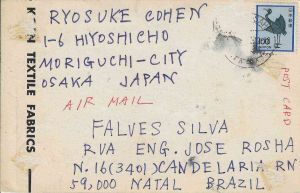 RYOSUKE COHEN
1-6 HIYOSHICHO
MORIGUCHI-CITY
OSAKA JAPAN
AIR MAIL
POST CARD
FALVES SILVA
RVA ENG. JOSE ROSHA
N.16(3401)CANDELARIA RN
59,000 NATAL BRAZIL
TEXTILE FABRICS